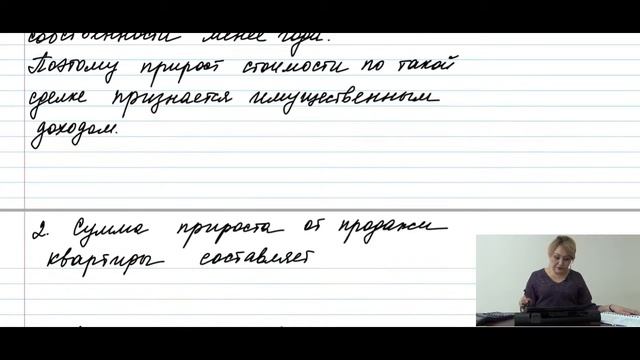 собственности менее года.
Поэтому прирост стоимости по такой
сделке признается имущественным
доходом.
2. Сумма прироста от продажи
квартиры составляет